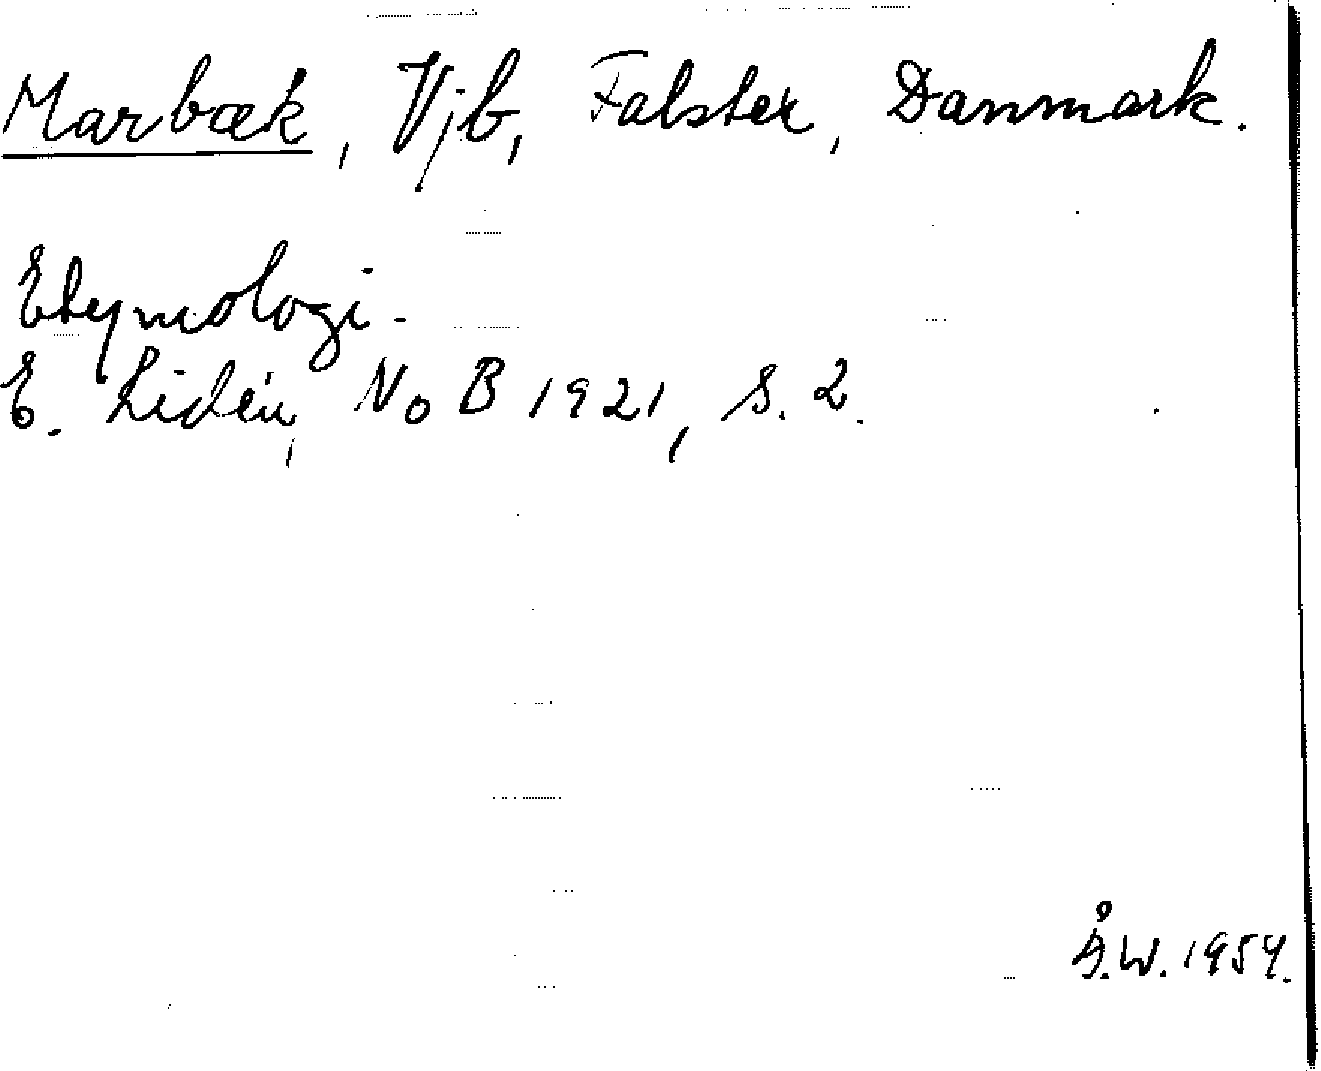 Marbæk, Vjb, Falster, Danmark.
Etymologi.
E. Lidén, NoB 1921, s. 2.
Å.W. 1954.